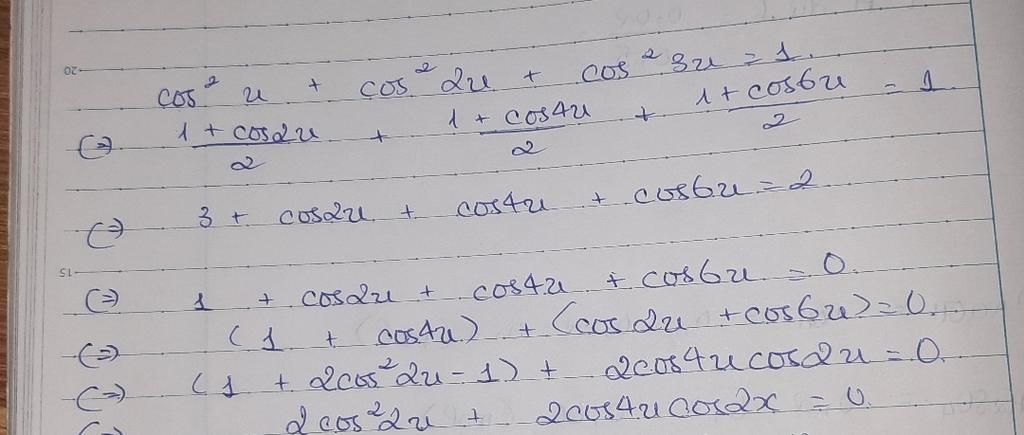 20
cos² x + cos² 2x + cos² 3x = 1.
(=) (1 + cos2x)/2 + (1 + cos4x)/2 + (1 + cos6x)/2 = 1
(=) 3 + cos2x + cos4x + cos6x = 2
15
(=) 1 + cos2x + cos4x + cos6x = 0.
(=) (1 + cos4x) + (cos 2x + cos6x) = 0.
(=) (1 + 2cos²2x - 1) + 2cos4x cos2x = 0.
2cos²2x + 2cos4x cos2x = 0.